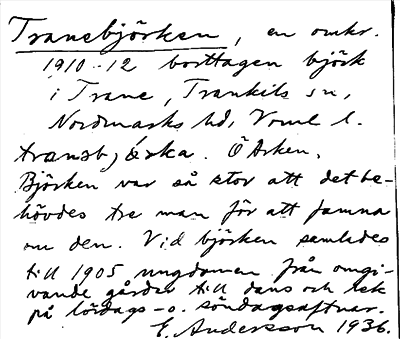 Tranebjörken, en omkr.
1910-12 borttagen björk
i Trane, Trankils sn,
Nordmarks hd, Vrml l.
tranəb, Ö Arken.
Björken var så stor att det be-
hövdes tre man för att famna
om den. Vid björken samlades
till 1905 ungdomen från omgi-
vande gårdar till dans och lek
på lördags- o. söndagsaftnar.
E. Andersson 1936.